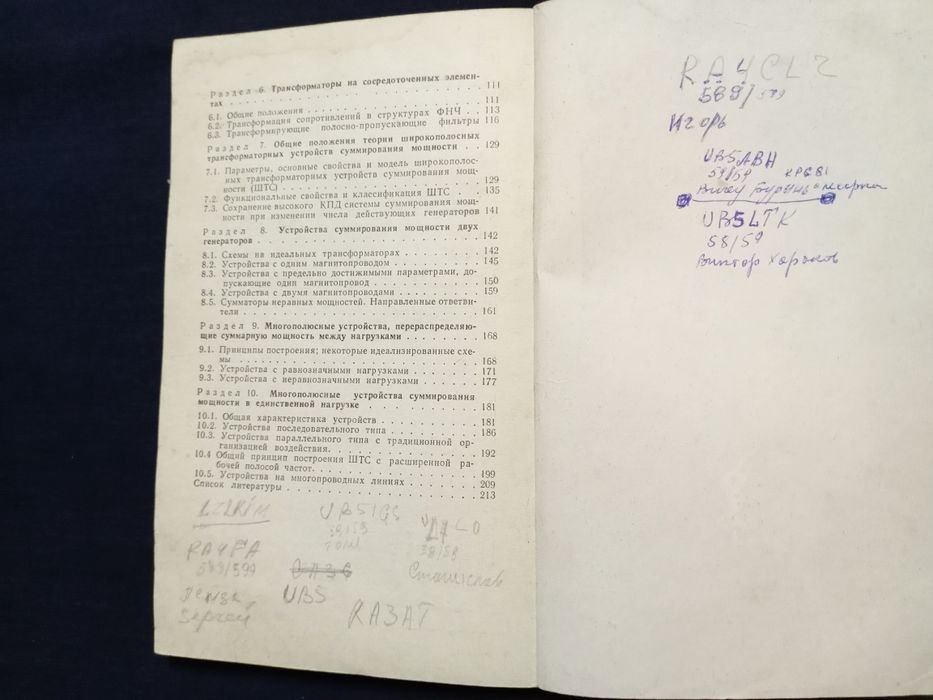 Раздел 6. Трансформаторы на сосредоточенных элемен-
тах . . . . . . . . . . . . . . . . . . . . 111
6.1. Общие положения . . . . . . . . . . . . . 111
6.2. Трансформация сопротивлений в структурах ФНЧ . . 113
6.3. Трансформирующие полосно-пропускающие фильтры 116
Раздел 7. Общие положения теории широкополосных
трансформаторных устройств суммирования мощности . . 129
7.1. Параметры, основные свойства и модель широкополос-
ных трансформаторных устройств суммирования мощ-
ности (ШТС) . . . . . . . . . . . . . . . 129
7.2. Функциональные свойства и классификация ШТС . . 135
7.3. Сохранение высокого КПД системы суммирования мощ-
ности при изменении числа действующих генераторов 141
Раздел 8. Устройства суммирования мощности двух
генераторов . . . . . . . . . . . . . . . . . 142
8.1. Схемы на идеальных трансформаторах . . . . . . 142
8.2. Устройства с одним магнитопроводом . . . . . . . 145
8.3. Устройства с предельно достижимыми параметрами, до-
пускающие один магнитопровод . . . . . . . . 150
8.4. Устройства с двумя магнитопроводами . . . . . . 159
8.5. Сумматоры неравных мощностей. Направленные ответви-
тели . . . . . . . . . . . . . . . . . . 161
Раздел 9. Многополюсные устройства, перераспределяю-
щие суммарную мощность между нагрузками . . . . . . 168
9.1. Принципы построения; некоторые идеализированные схе-
мы . . . . . . . . . . . . . . . . . . . 168
9.2. Устройства с равнозначными нагрузками . . . . . 171
9.3. Устройства с неравнозначными нагрузками . . . . 177
Раздел 10. Многополюсные устройства суммирования
мощности в единственной нагрузке . . . . . . . . . 181
10.1. Общая характеристика устройств . . . . . . . . 181
10.2. Устройства последовательного типа . . . . . . . 186
10.3. Устройства параллельного типа с традиционной ор-
ганизацией воздействия. . . . . . . . . . . . 192
10.4 Общий принцип построения ШТС с расширенной ра-
бочей полосой частот. . . . . . . . . . . . . 199
10.5. Устройства на многопроводных линиях . . . . . . 209
Список литературы . . . . . . . . . . . . . . . 213
UB5IGS
59/59
RA4FA
589/599
Станислав
Пенза
UB5
Сергей
RA3AT
RA4CLZ
589/599
Игорь
UB5ABH
59/59
UB5LTK
58/59
Виктор Харьков